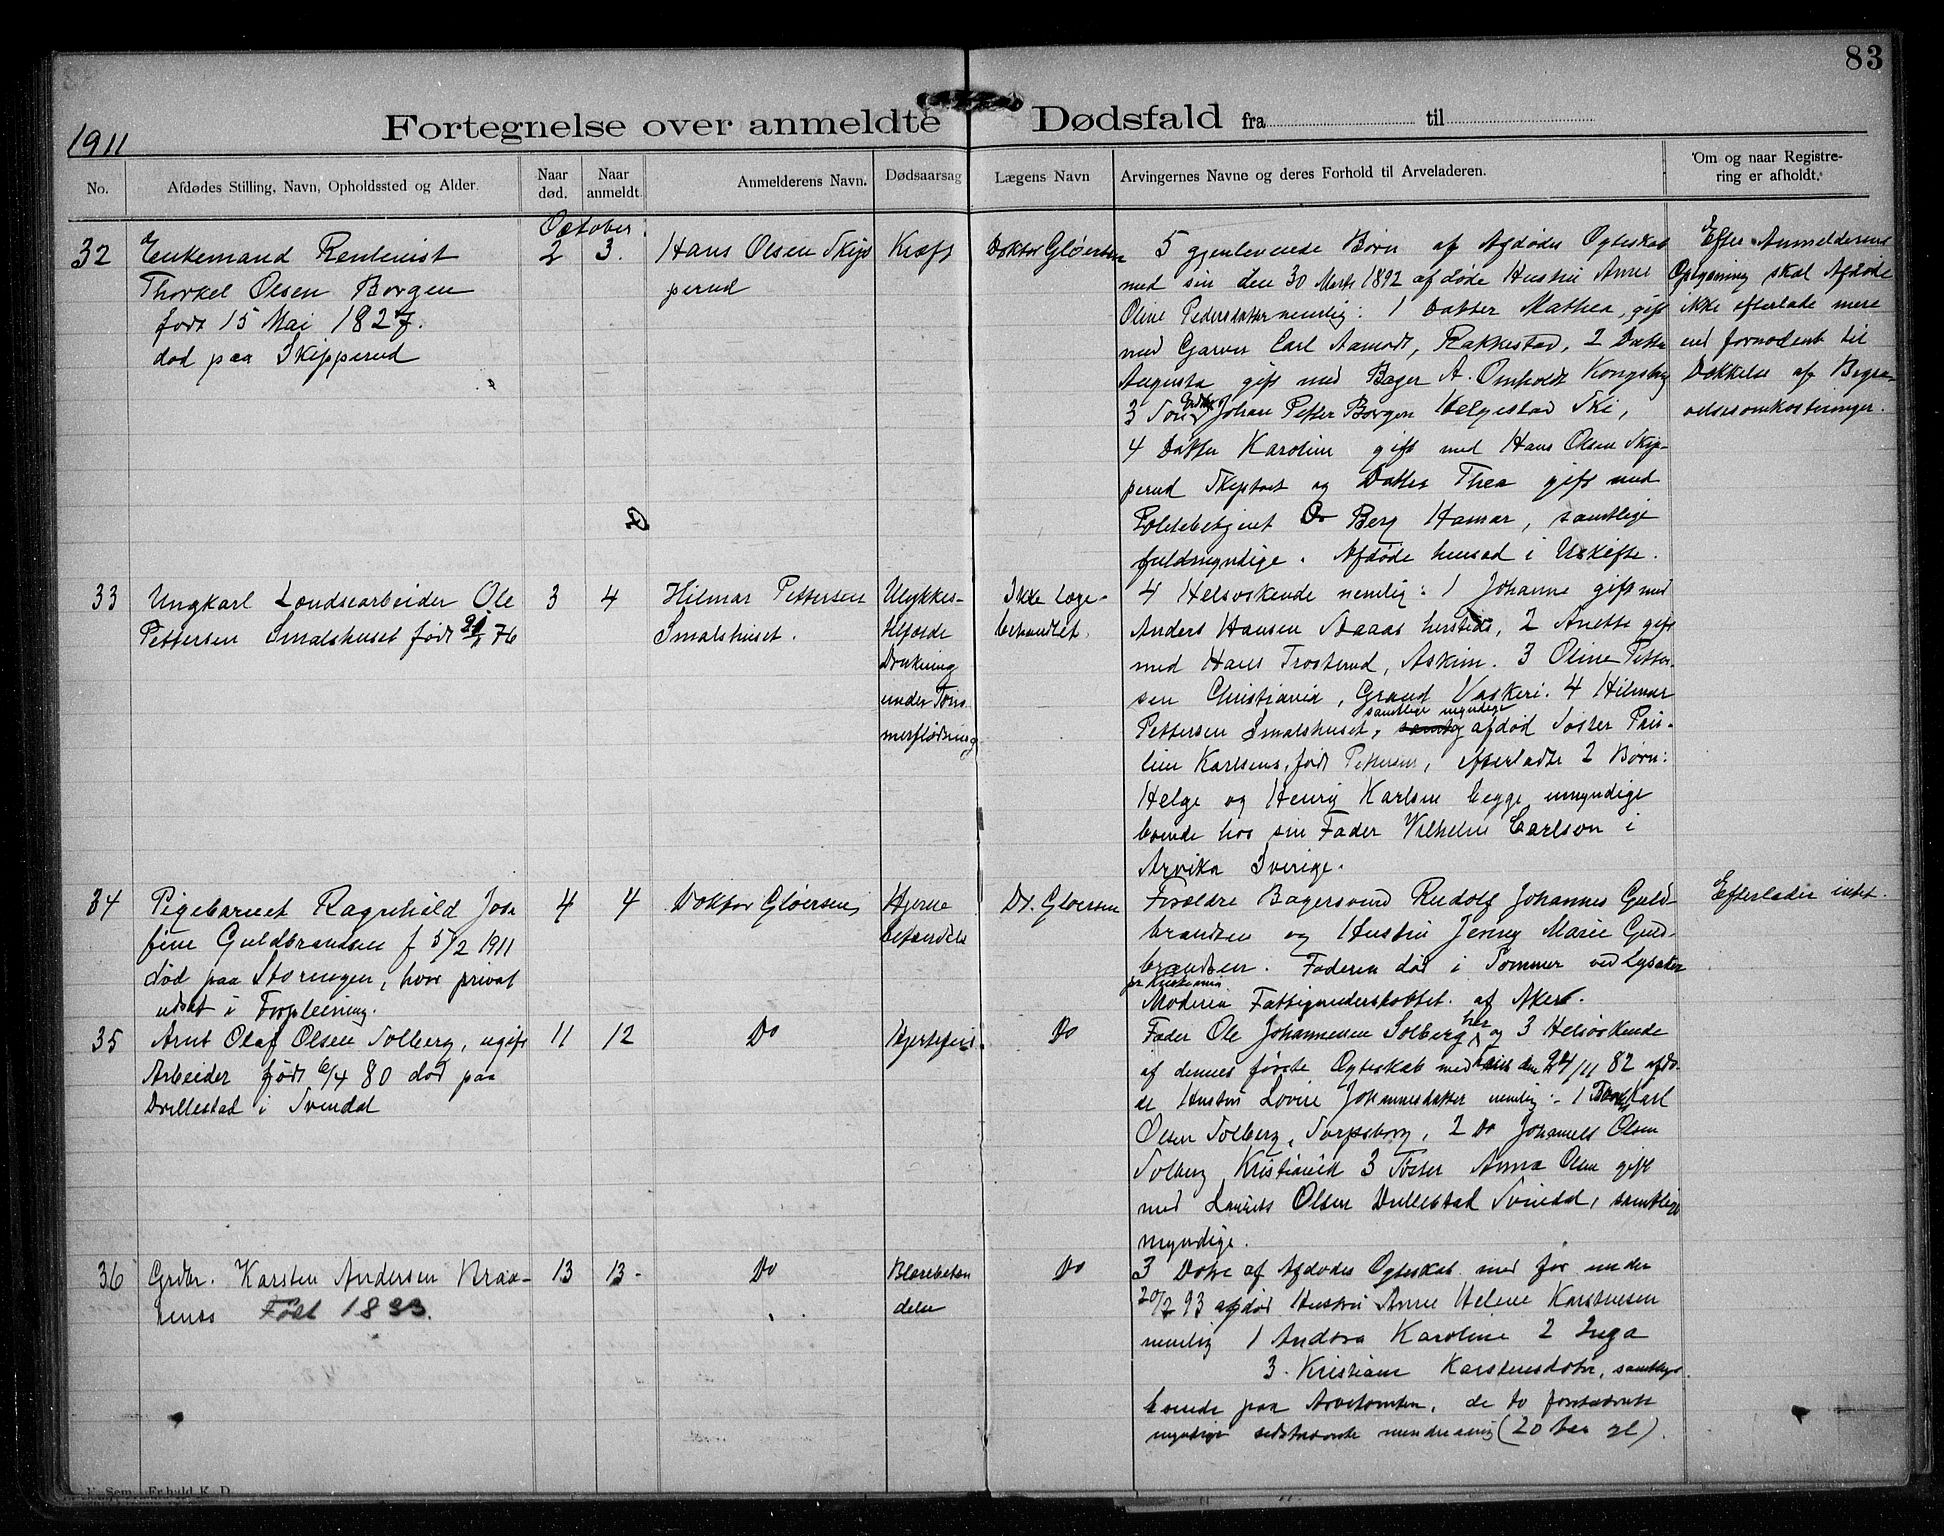 83
1911
Fortegnelse over anmeldte Dødsfald fra til
No.
Afdødes Stilling, Navn, Opholdssted og Alder.
Naar død.
Naar anmeldt.
Anmelderens Navn.
Dødsaarsag
Lægens Navn
Arvingernes Navne og deres Forhold til Arveladeren.
Om og naar Registre-
ring er afholdt.
October
32
Enkemand Rentenist
Thorkel Olsen Borgen
født 15 Mai 1827.
død paa Skipperud
2
3.
Hans Olsen Skip
perud
Kræft
Doktor Gløersen
5 gjenlevende Børn af Afdødes Ogteskab
med sin den 30 Marts 1892 afdøde Hustru Anne
Oline Pedersdatter nemlig: 1 Datter Mathea, gift
med Garver Carl Aamodt, Rakkestad, 2 Datter
Augusta gift med Bager A. Omholdt Kongsberg
3 Søn Johan Petter Borgen Helgestad Ski,
4 Datter Karoline gift med Hans Olsen Skip-
perud Skiptvet og Datter Thea gift med
Politibetjent O Berg Hamar, samtlige
fuldmyndige. Afdøde hensad i Uskifte.
Efter Anmelderens
Oplysning skal Afdøde
ikke efterlade mere
end fornødent til
Dækkelse af Begra-
velsesomkostninger.
33
Ungkarl Løndsearbeider Ole
Pettersen Smalshuset født 76
3
4
Hilmar Pettersen
Smalshuset.
Ulykkes-
tilfælde
Drukning
under Tøm
merflødning
Ikke læge-
behandlet.
4 Helsøskende nemlig: 1 Johanne gift med
Anders Hansen herstids, 2 Anette gift
med Hans Trosterud, Askim. 3 Oline Petter-
sen Christiania, Grand Vaskeri. 4 Hilmar
samtlige myndige
Pettersen Smalshuset, afdød Søster Pau-
line Karlsens, født Pettersen, efterladte 2 Børn:
Helge og Henrig Karlsen begge umyndige
boende hos sin Fader Vilhelm Carlson i
Arvika Sverige.
34
Pigebarnet Ragnhild Jose
fine Guldbrandsen f 5/2 1911
død paa Storengen, hvor privat
udsat i Forpleining.
4
4
Doktor Gløersen
Hjerne
betændelse
Dr. Gløersen
Forældre Bagersvend Rudolf Johannes Guld-
brandsen og Hustru Jenny Marie Guld-
brandsen. Faderen død i Sommer ved Lysaker
pr Kristiania
Moderen Fattigunderstøttet af Aker.
Efterlader intet.
35
Arnt Olaf Olsen Solberg, ugift
Arbeider født 6/4 80 død paa
Drillestad i Svendal
11
12
Do
Hjertefeil.
Do
Fader Ole Johannesen Solberg her og 3 Helsøskende
af dennes første Ogteskab med den 24/11 82 afdø-
de Hustru Lovise Johannesdatter nemlig: 1 Carl
Olsen Solberg, Sarpsborg, 2 Do Johannes Olsen
Solberg Kristiania 3 Søster Anna Olsen gift
med Laurits Olsen Drillestad Svindal, samtlige
myndige.
36
Grdbr. Karsten Andersen Braa-
Født 1833.
13
13-
Do
Blærebetæn
delse
Do
3 Døtre af Afdødes Ogteskab med før under
20/2 93 afdød Hustru Anne Helene Karstensen
nemlig 1 Andora Karoline 2 Inga
3. Kristiane Karstensdøtre, samtlige
boende paa Arvetomten, de to førstnævnte
myndige sidstnævnte mindreaarig (20 aar gl).